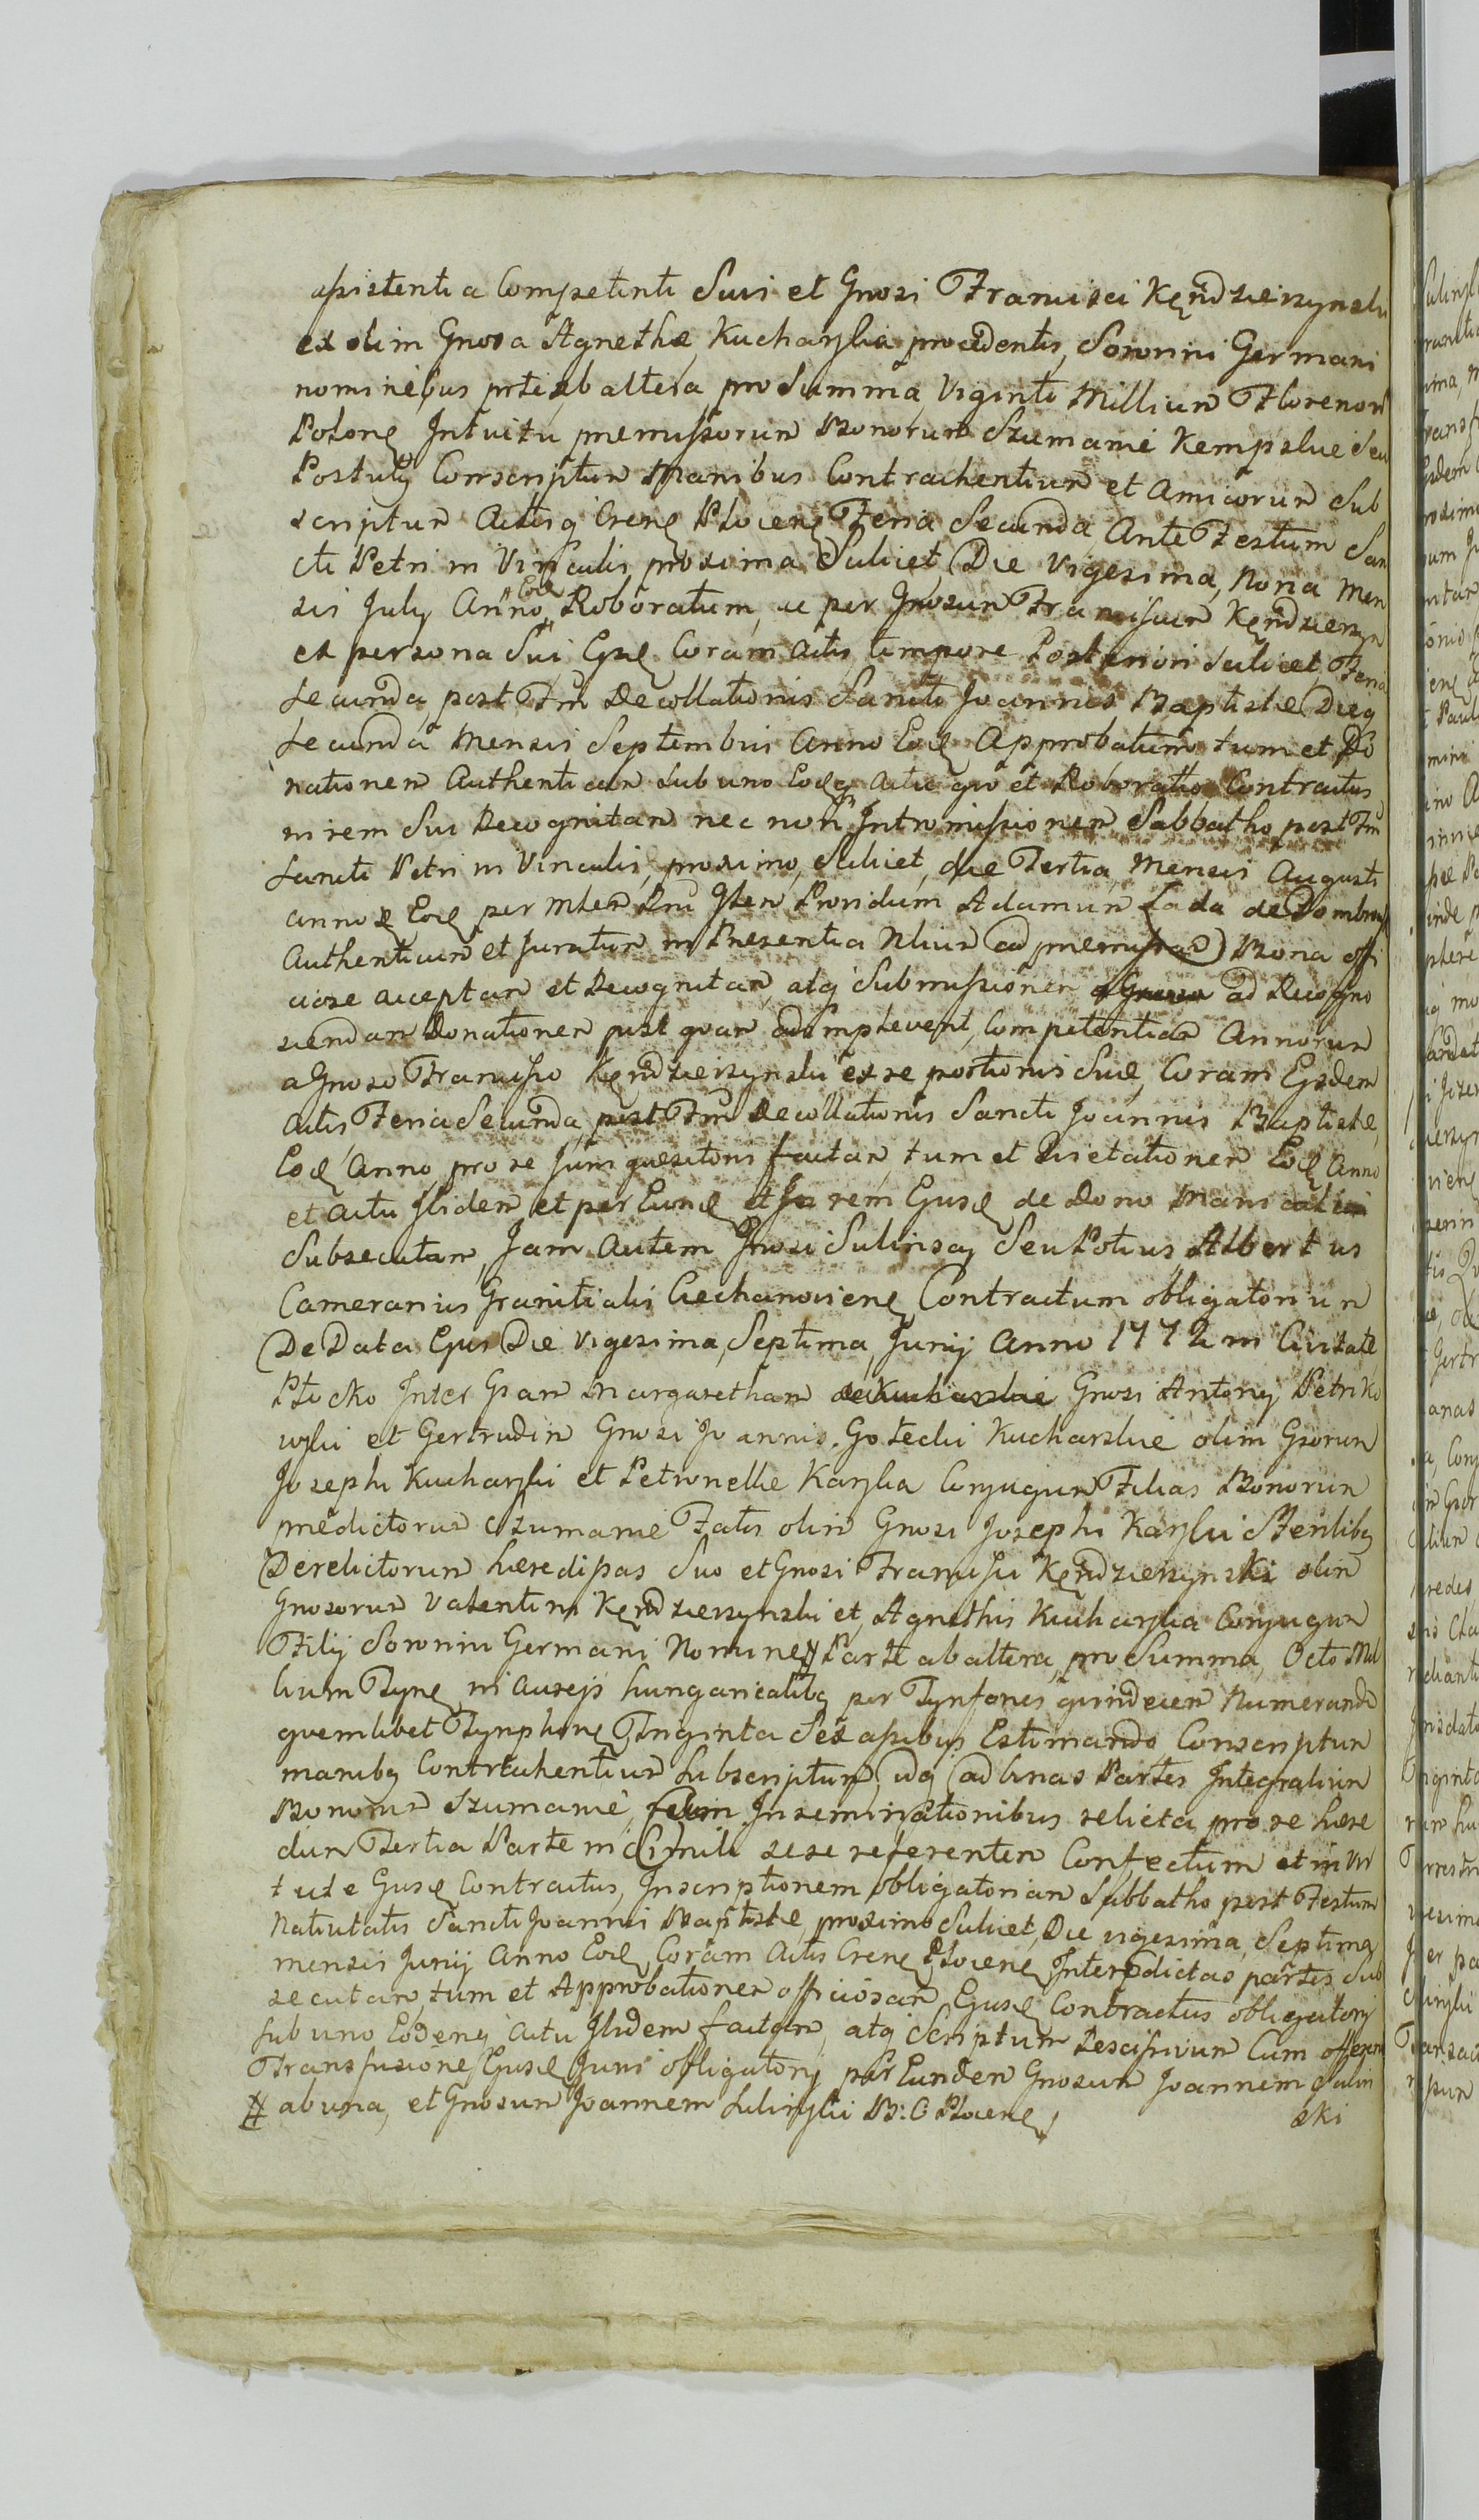 assistentia Competenti Suis et Gnosi Francisci Kędzierzynski
ex olim Gnosa Agnethe Kucharska procedentis, Sororini Germani
nominibus prte ab altera pro Summa Viginti Milliun Florenor
Polone Intuitu premissorun Bonorun Szumanie Kempskie Seu
Postuly Conscriptun Manibus Contrahentiun et Amicorun Sub
scriptun Actisq Crene Plocene Feria Secunda Ante Festum San
cti Petri in Vinculis proxima Scilicet Die Vigesima, Nona Men
sis July Anno Eod Roboratum, ac per Gnosun Franciscun Kędzierzyn
ex persona Sui Gsd Coram Actis tempore Posteriori Scilicet Feria
Secunda post Fm Decollationis Sancti Joannis Baptiste Dieq
Secunda Mensis Septembris Anno Eod Approbatum tum et Do
nationen Authentican sub uno Eodq Actu quo et Roboratio Contractus
in rem Sui Recognitan nec non Intromissionen Sabbatho post Fm
Sancti Petri in Vinculis, proximo, Scilicet, die Tertia, Mensis Augusti
anno Eod per Mlen Rni Glen Providum Adamun Lada de Dombrows
Authenticun et Juratun in Presentia Nliun ad premissa Bona offi
ciose acceptan et Recognitan, atq Submissionen ad Recogno
scendan Donationen post quan adimpleverit, Competentian Annorun
a Gnoso Francisco Kędzierzynski ex se portionis Sue Coram Eisdem
Actis Feria Secunda, post Fm Decollationis Sancti Joannis Baptiste
Eod Anno, pro se Juris quesitoris factan, tum et Dietationen Eod Anno
et Actu Ibiden et per Eund et In rem Eiusd de Dono
Subsecutan, Jam Autem Gnosi Sulinscy Seu Potius Albertus
Camerarius Granitialis Ciechanoviene Contractum obligatoriun
De Data Ejus Die Vigesima, Septima Junij Anno 1772 in Civitate
Plocko Inter Gsan Margarethan Gnosi Antonij Petriko
wski et Gertrudin Gnosi Joannis Gotecki Kucharskie olim Gsorun
Josephi Kucharski et Petronelle Karska Conjugun Filias Bonorun
predictorun Szumanie Fatis olin Gnosi Josephi Karski Sterilibq
Derelictorun heredipas Suo et Gnosi Francisci Kędzierzynski olin
Gnosorun Valentini Kędzierzynski et Agnethis Kucharska Conjugun
Filij Sororini Germani Nomine # Parte ab altera, pro Summa, Octo Mil
lium Tyne in Aureis hungaricalibq per Tynfones quindecen Numerando
quemlibet Tynphone Triginta Sex assibus Estimando Conscriptun
manibq Contrahentiun Subscriptun, idq ad binas Partes Integraliun
Bonorun Szumanie, Cum Inseminationibus relicta pro se here
dun Tertia Parte in Simili sese referenten Confectum et in Vir
tute Eiusd Contractus, Inscriptionem obligatorian Sabbatho post Festum
Nativitatis Sancti Joannis Baptiste, proximo Scilicet, Die vigesima, Septima
mensis Junij Anno Eod, Coram Actis Crene Plocene Inter dictas partes Sub
secutan, tum et Approbationen officiosan Eiusd Contractus obligatorij
sub uno Eodenq Actu Ibidem factan, atq Scriptum Rescissivun Cum
Transfusione Eiusd Juris obligatorij per Eunden Gnosun Joannem Sulin
# ab una, et Gnosun Joannem Sulinski B: C Plocene
ski